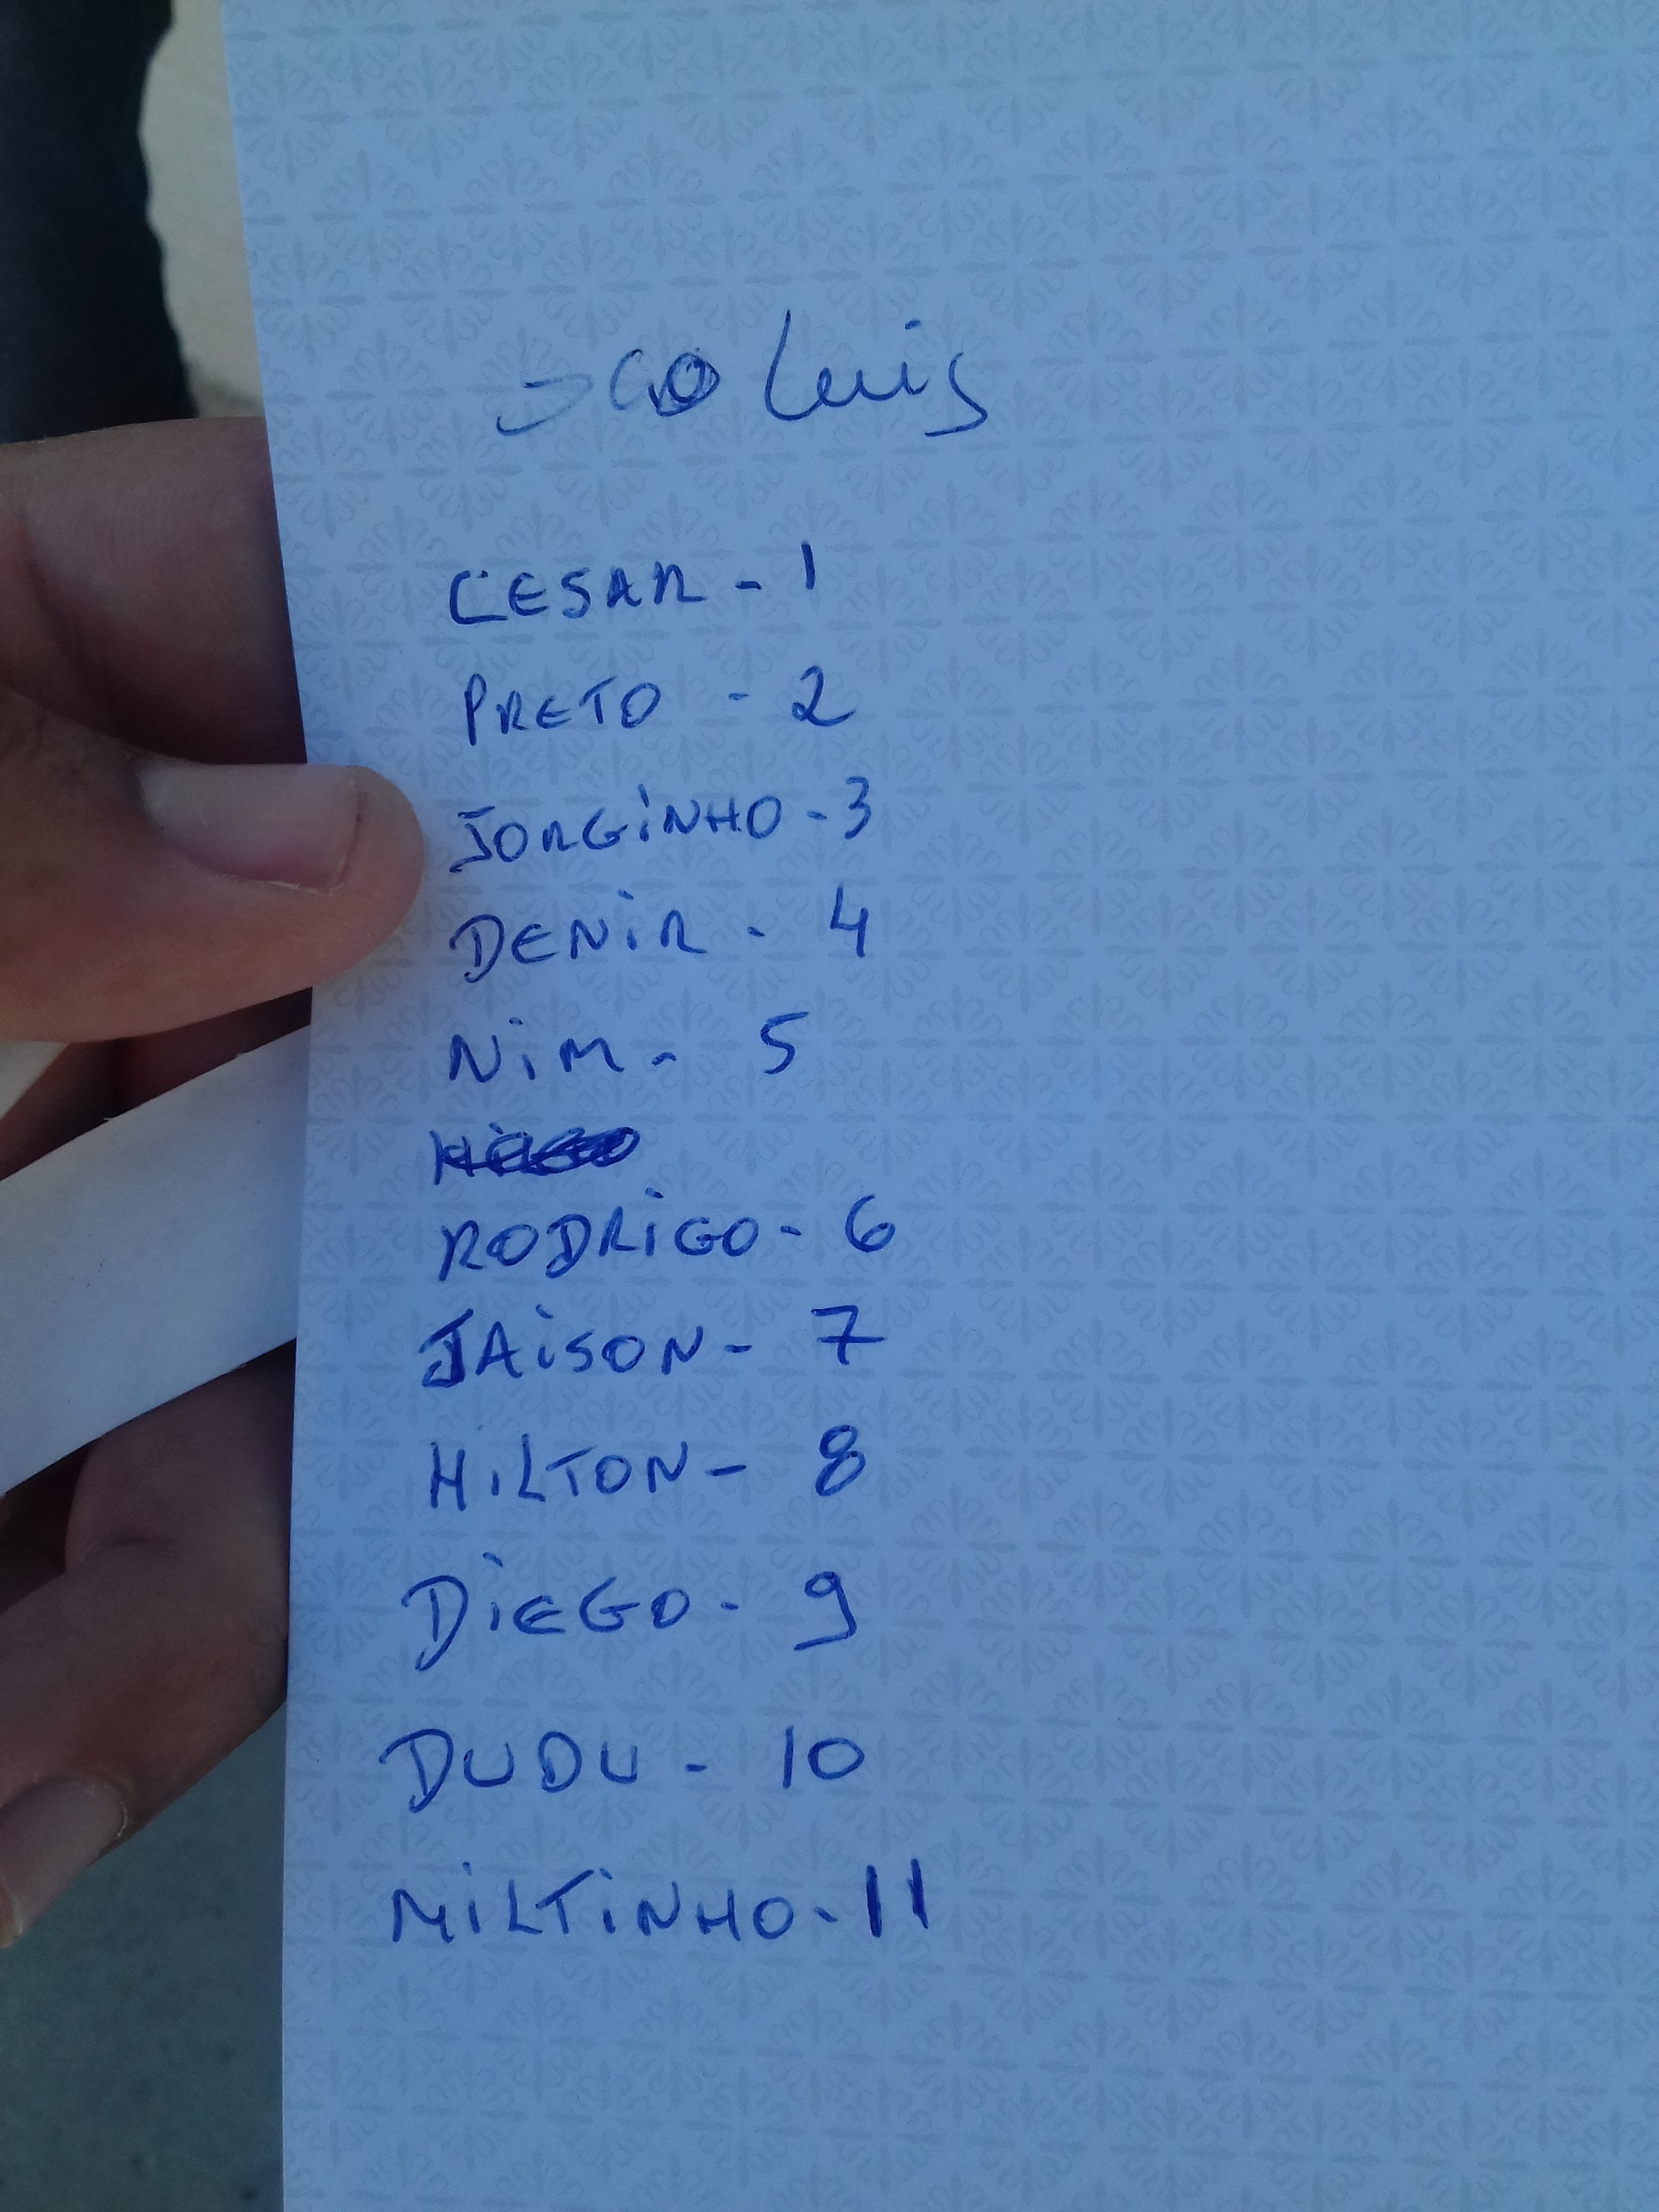 Luis
CESAR - 1
PRETO - 2
JORGINHO - 3
DENIR - 4
NIM - 5
RODRIGO - 6
JAISON - 7
HILTON - 8
DIEGO - 9
DUDU - 10
MILTINHO - 11